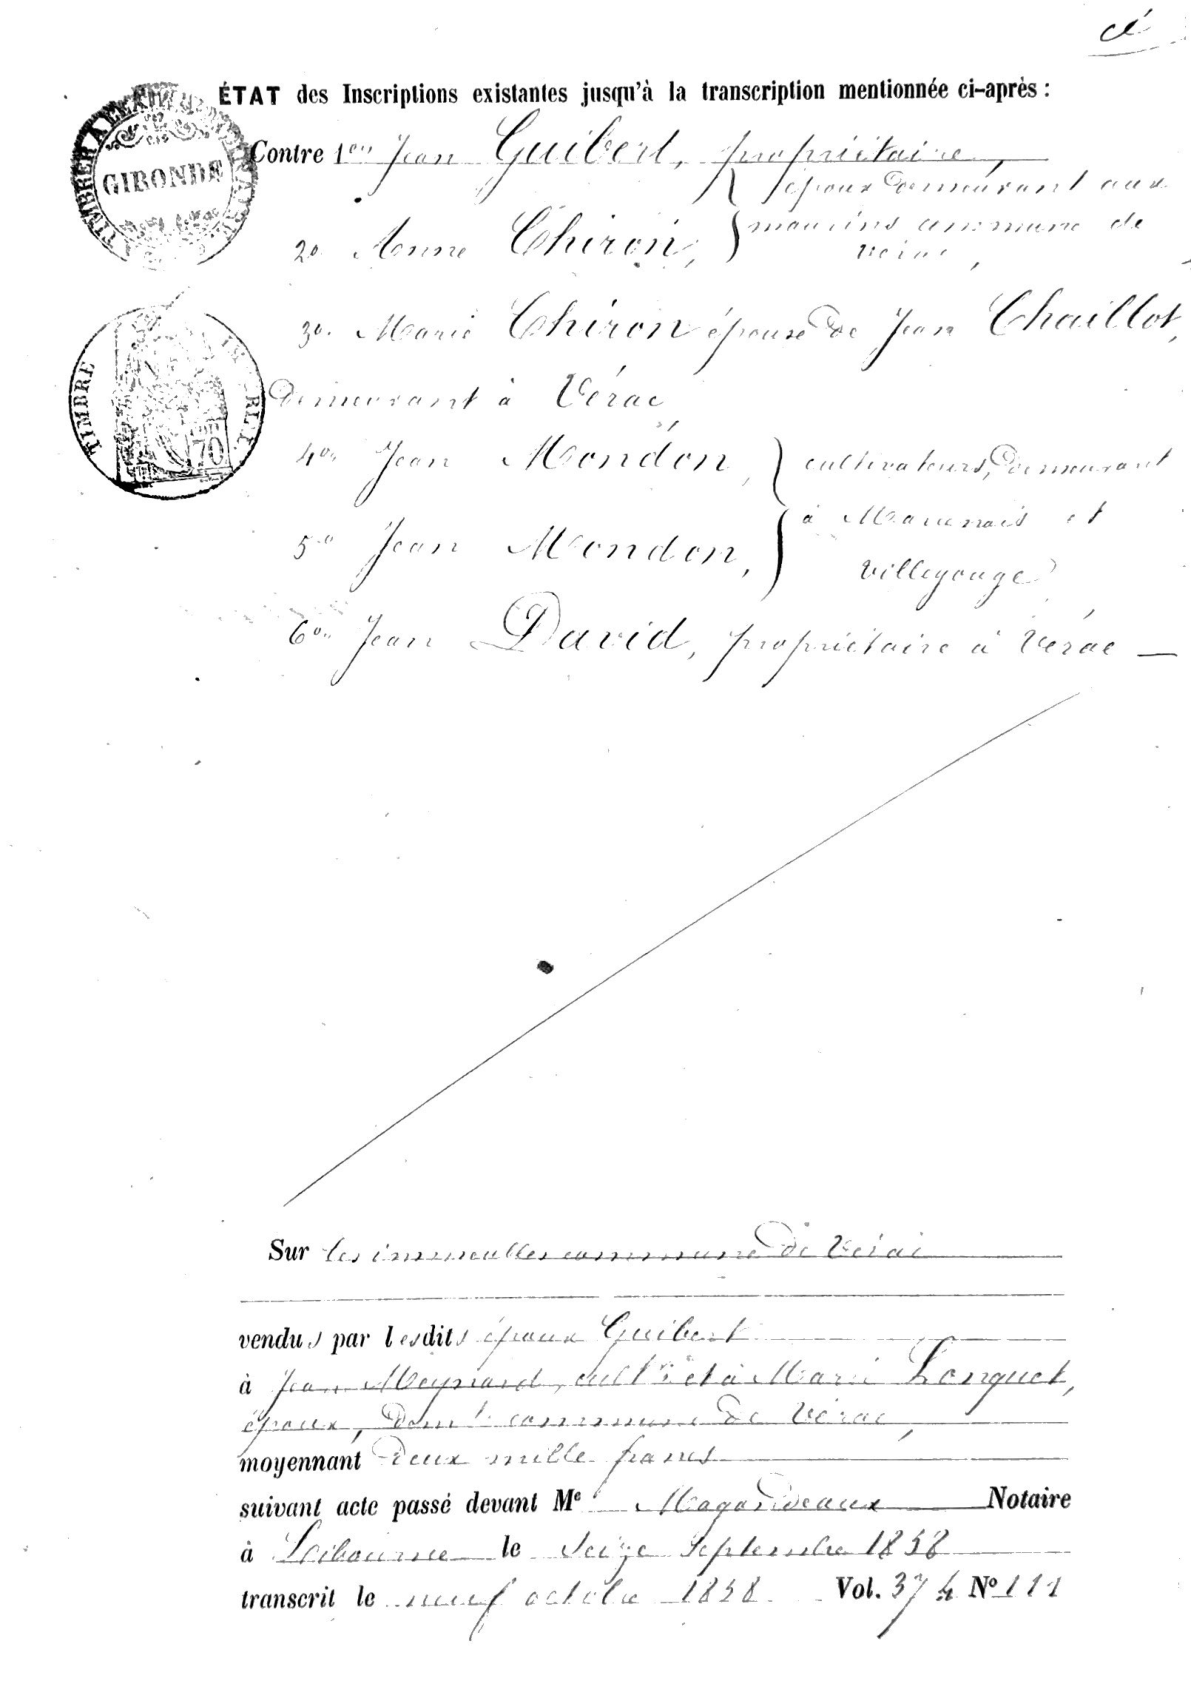 cé
ÉTAT des Inscriptions existantes jusqu'à la transcription mentionnée ci-après :
Contre 1ent Jean Guibert, propriétaire,
époux demeurant aux
2o Anne Chiron, maurins commune de
Vérac,
3o. Marie Chiron épouse de Jean Chaillot,
demeurant à Vérac,
4o. Jean Mondon, cultivateurs, demeurant
à et
5o Jean Mondon, villegouge
6o. Jean David, propriétaire à Vérac —
GIRONDE
TIMBRE
70
Sur les immeubles commune de Vérac
vendus par lesdits époux Guibert
à Jean Meynard, cult.r et à Marie Longuet,
époux, dem.t commune de Vérac,
moyennant deux mille francs
suivant acte passé devant Me Magondeaux Notaire
à Libourne le Seize Septembre 1858
transcrit le neuf octobre 1858 Vol. 374 No 111